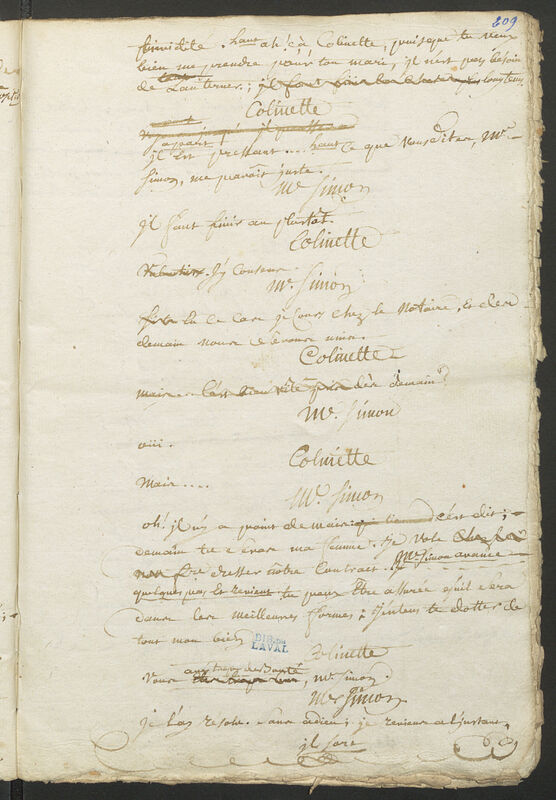 209
timidité. haut ah! çà, Colinette, puisque tu veux
bien me prendre pour ton mari, il n'est pas besoin
de Lanterner; il faut finir
Colinette
apart
il Est pressant... haut Ce que vous dites, Mr
Simon, me parait juste.
Mr Simon
il faut finir au plustôt.
Colinette
Volontiers. j'y consens.
Mr Simon
En Ce Cas je Cours chez le Notaire, Et dès
demain nous serons unis.
Colinette
Mais.. dès demain?
Mr Simon
oui.
Colinette
Mais....
Mr Simon
oh! il n'y a point de mais, C'est dit;
demain tu seras ma femme. je vole
dresser nôtre Contract. Mr Simon avance
quelques pas Et revient tu peux Être assurée qu'il sera
dans les meilleures formes; j'entens te dotter de
tout mon bien
BIB. DE
LAVAL
Colinette
Vous avez trop de bonté, Mr Simon.
Mr Simon
je L'ai résolu. sans adieu; je reviens a L'instant.
il sort